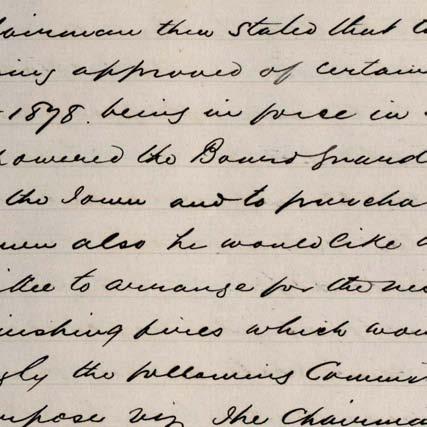 airman then stated that t
ing approved of certain
1898. being in force in
powered the Board grand
the Town and to purcha
also he would like
ttee to arrange for the ne
inishing fires which wou
gly the following Commi
urpose viz The Chairma